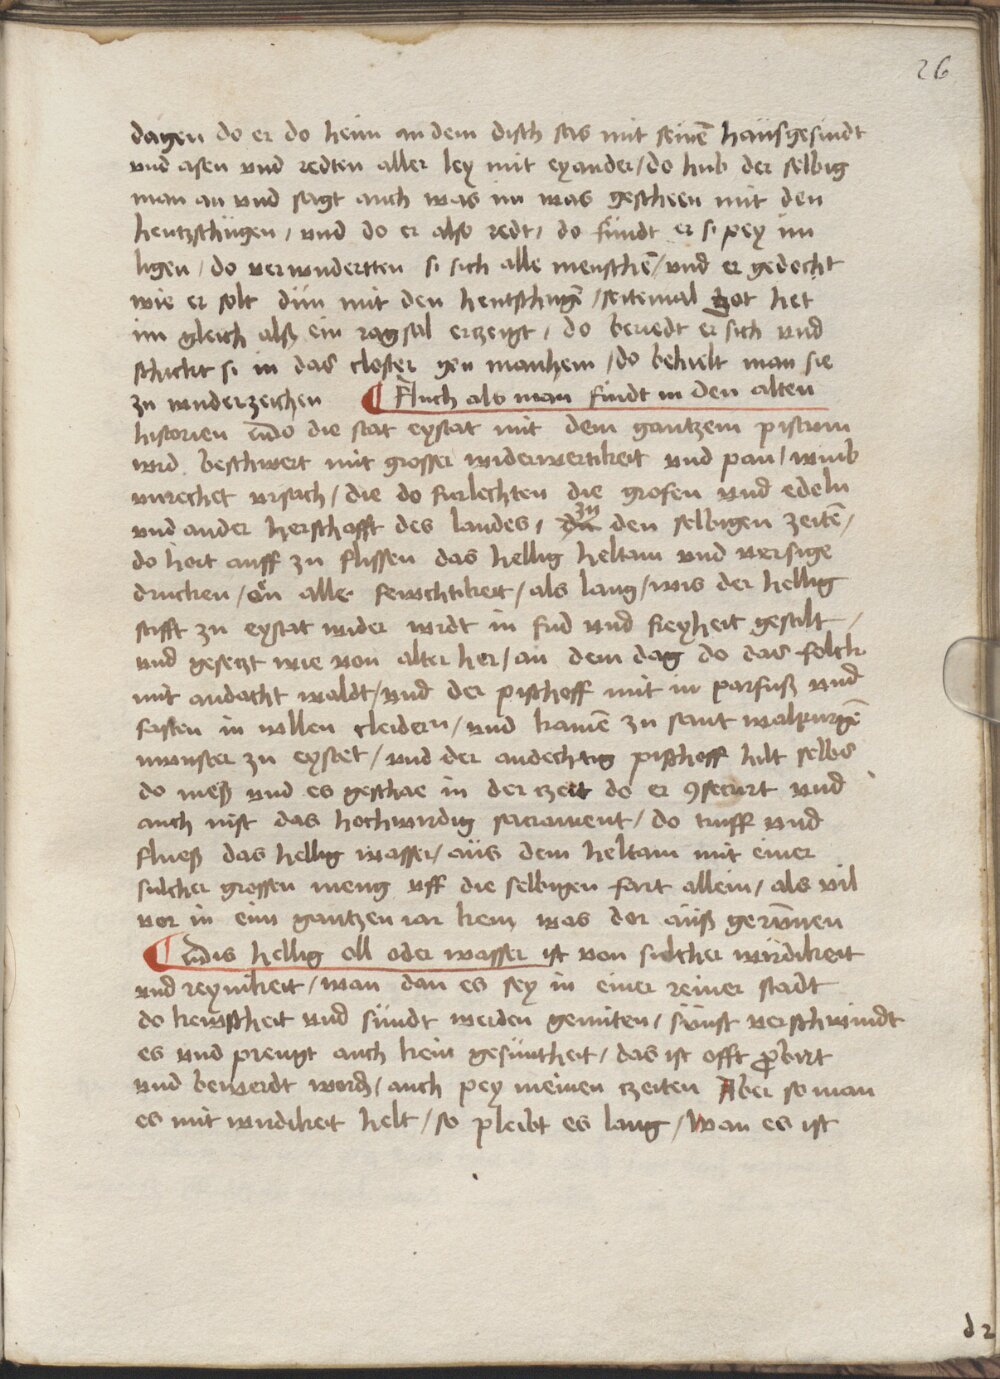 26
dagen do er do heim an dem disch sas mit seinē haüsgesindt
vnd asen vnd redten aller ley mit eyander / do hub der selbig
man an vnd sagt auch was im was gescheen mit den
hentzschügen / vnd do er also redt / do fündt er si pey im
ligen / do verwndertten si sich alle menschē / vnd er gedocht
wie er solt dün mit den hentschugē / seitemal got het
im gleich alß ein ragsal erzeigt / do beriedt er sich vnd
schickt si in das closter gen manhem / do behielt man sie
zu wnderzeichen ¶ Auch als man findt in den alten
historien wo die stat eystat mit dem gantzem pistum
wrd beschwert mit grosser widerwertikeit vnd pan / wmb
vnrechet vrsach / die do furlechten die grosen vnd edeln
vnd ander herschafft des landes / zu den selbigen zeitē /
do hort auff zu flissen das hellig heltam vnd versige
drucken / on alle fewchtikeit / als lang / wis der hellig
stifft zu eystat wider wrdt in frid vnd freyheit gestilt /
vnd gesetzt wie von alter her / an dem dag do das folck
mit andacht waldt / vnd der pischoff mit in parfuß vnd
fasten in wllen cleidern / vnd kamē zu sant walpurgē
mwnster zu eystet / vnd der andechtig pischoff hilt selbs
do meß vnd es geschae in der czeit do er 9secrirt vnd
auch nist das hochwirdig sacrament / do truff vnd
flueß das hellig wasser / aüs dem heltam mit einer
sulcher grossen meng vff die selbigen fart allein / als vil
vor in eim gantzen iar kem was dor aüß gerūnen
¶ Dis hellig oll oder wasser ist von sulcher wirdikeit
vnd reynikeit / wan dan es sey in einer reiner stadt
do kewscheit vnd sündt werden gemiten / sünst verschwindt
es vnd prengt auch kein gesüntheit / das ist offt probirt
vnd bewerdt wordē / auch pey meinen czeiten Aber so man
es mit wirdikeit helt / so pleibt es lang / Wan es ist
d 2